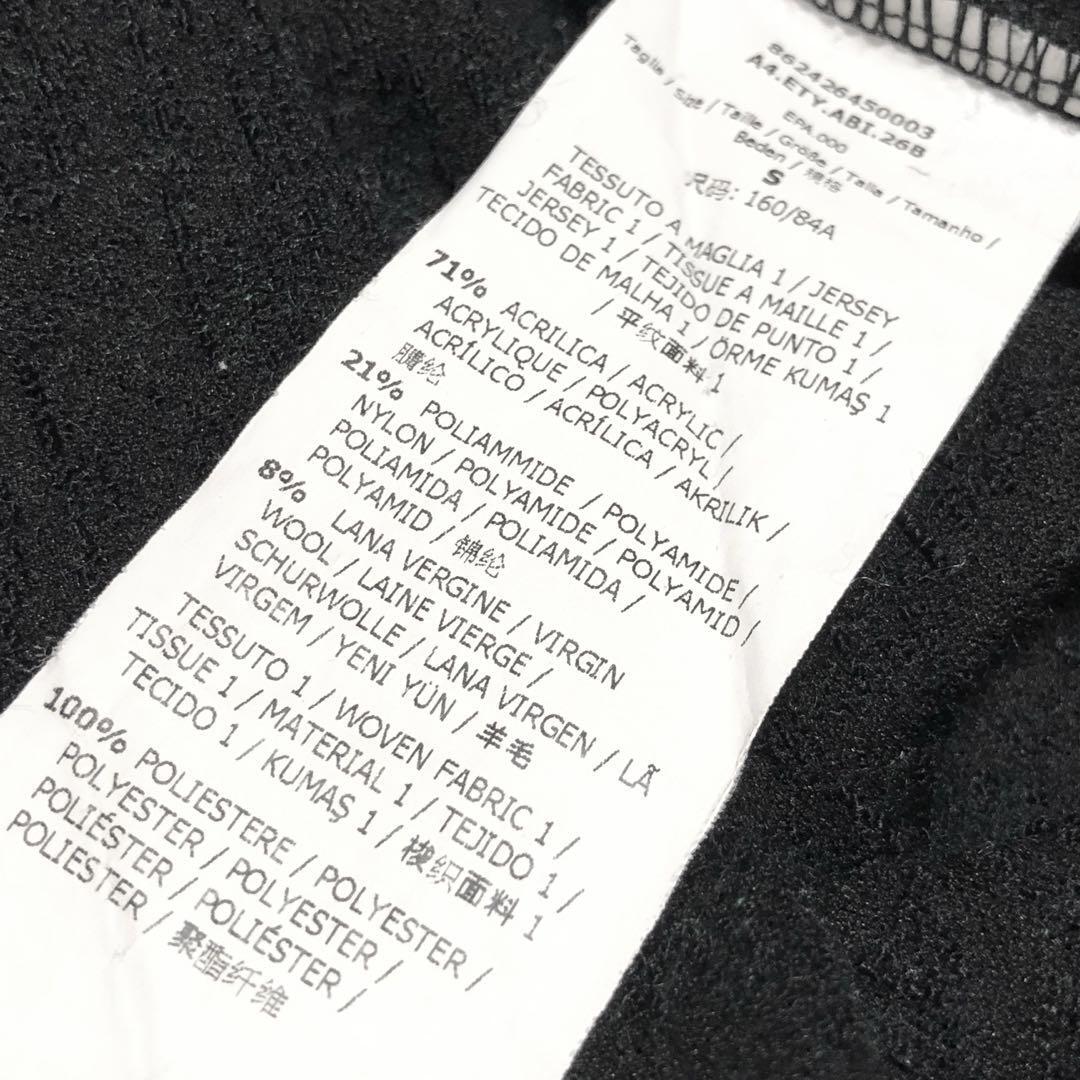 86242645 0003
A4.ETY.ABI.26B
EPA.000
Taglia / Size / Taille / Größe / Talla / Tamanho /
Beden / 规格
S
尺码: 160/84A
TESSUTO A MAGLIA 1 / JERSEY
FABRIC 1 / TISSUE A MAILLE 1 /
JERSEY 1 / TEJIDO DE PUNTO 1 /
TECIDO DE MALHA 1 / ÖRME KUMAŞ 1
/ 平纹面料 1
71% ACRILICA / ACRYLIC /
ACRYLIQUE / POLYACRYL /
ACRÍLICO / ACRÍLICA / AKRILIK /
腈纶
21% POLIAMMIDE / POLYAMIDE /
NYLON / POLYAMIDE / POLYAMID /
POLIAMIDA / POLIAMIDA /
POLYAMID / 锦纶
8% LANA VERGINE / VIRGIN
WOOL / LAINE VIERGE /
SCHURWOLLE / LANA VIRGEN / LÃ
VIRGEM / YENİ YÜN / 羊毛
TESSUTO 1 / WOVEN FABRIC 1 /
TISSUE 1 / MATERIAL 1 / TEJIDO 1 /
TECIDO 1 / KUMAŞ 1 / 梭织面料 1
100% POLIESTERE / POLYESTER /
POLYESTER / POLYESTER /
POLIÉSTER / POLIÉSTER /
POLIESTER / 聚酯纤维